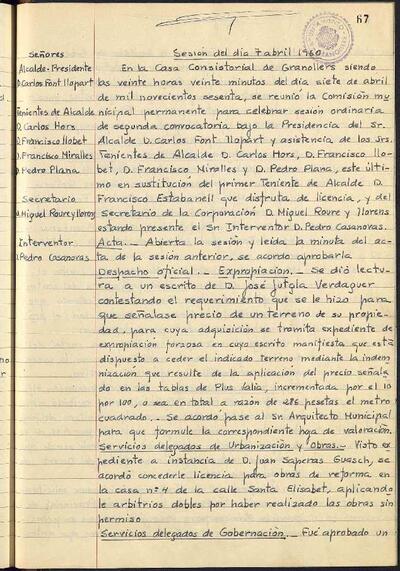 67
Sesion del dia 7 abril 1960
Señores
Alcalde-Presidente
D. Carlos Font Llopart
Tenientes de Alcalde
D. Carlos Hors
D. Francisco Llobet
D. Francisco Miralles
D. Pedro Plana
Secretario
D. Miguel Roure y Llorens
Interventor
D. Pedro Casanovas
En la Casa Consistorial de Granollers siendo
las veinte horas veinte minutos del dia siete de abril
de mil novecientos sesenta, se reunió la Comisión mu
nicipal permanente para celebrar sesión ordinaria
de segunda convocatoria bajo la Presidencia del Sr.
Alcalde D. Carlos Font Llopart y asistencia de los Srs.
Tenientes de Alcalde D. Carlos Hors, D. Francisco Llo-
bet, D. Francisco Miralles y D. Pedro Plana, este últi-
mo en sustitución del primer Teniente de Alcalde D.
Francisco Estabanell que disfruta de licencia, y del
Secretario de la Corporación D. Miguel Roure y Llorens
estando presente el Sr Interventor D. Pedro Casanovas.
Acta._ Abierta la sesión y leida la minuta del ac-
ta de la sesión anterior, se acordo aprobarla
Despacho oficial._ Expropiacion._ Se dió lectu-
ra a un escrito de D. José Jutgla Verdaguer
contestando el requerimiento que se le hizo para
que señalase precio de un terreno de su propie-
dad, para cuya adquisición se tramita expediente de
expropiación forzosa en cuyo escrito manifiesta que está
dispuesto a ceder el indicado terreno mediante la indem-
nización que resulte de la aplicación del precio señala-
do en las tablas de Plus Valia, incrementada por el 10
por 100, o sea en total a razón de 286 pesetas el metro
cuadrado._ Se acordó pase al Sr. Arquitecto Municipal
para que formule la correspondiente hoja de valoración.
Servicios delegados de Urbanización y Obras._ Visto ex-
pediente a instancia de D. Juan Saperas Guasch, se
acordó concederle licencia para obras de reforma en
la casa nº 4 de la calle Santa Elisabet, aplicando
le arbitrios dobles por haber realizado las obras sin
permiso
Servicios delegados de Gobernación._ Fué aprobado un